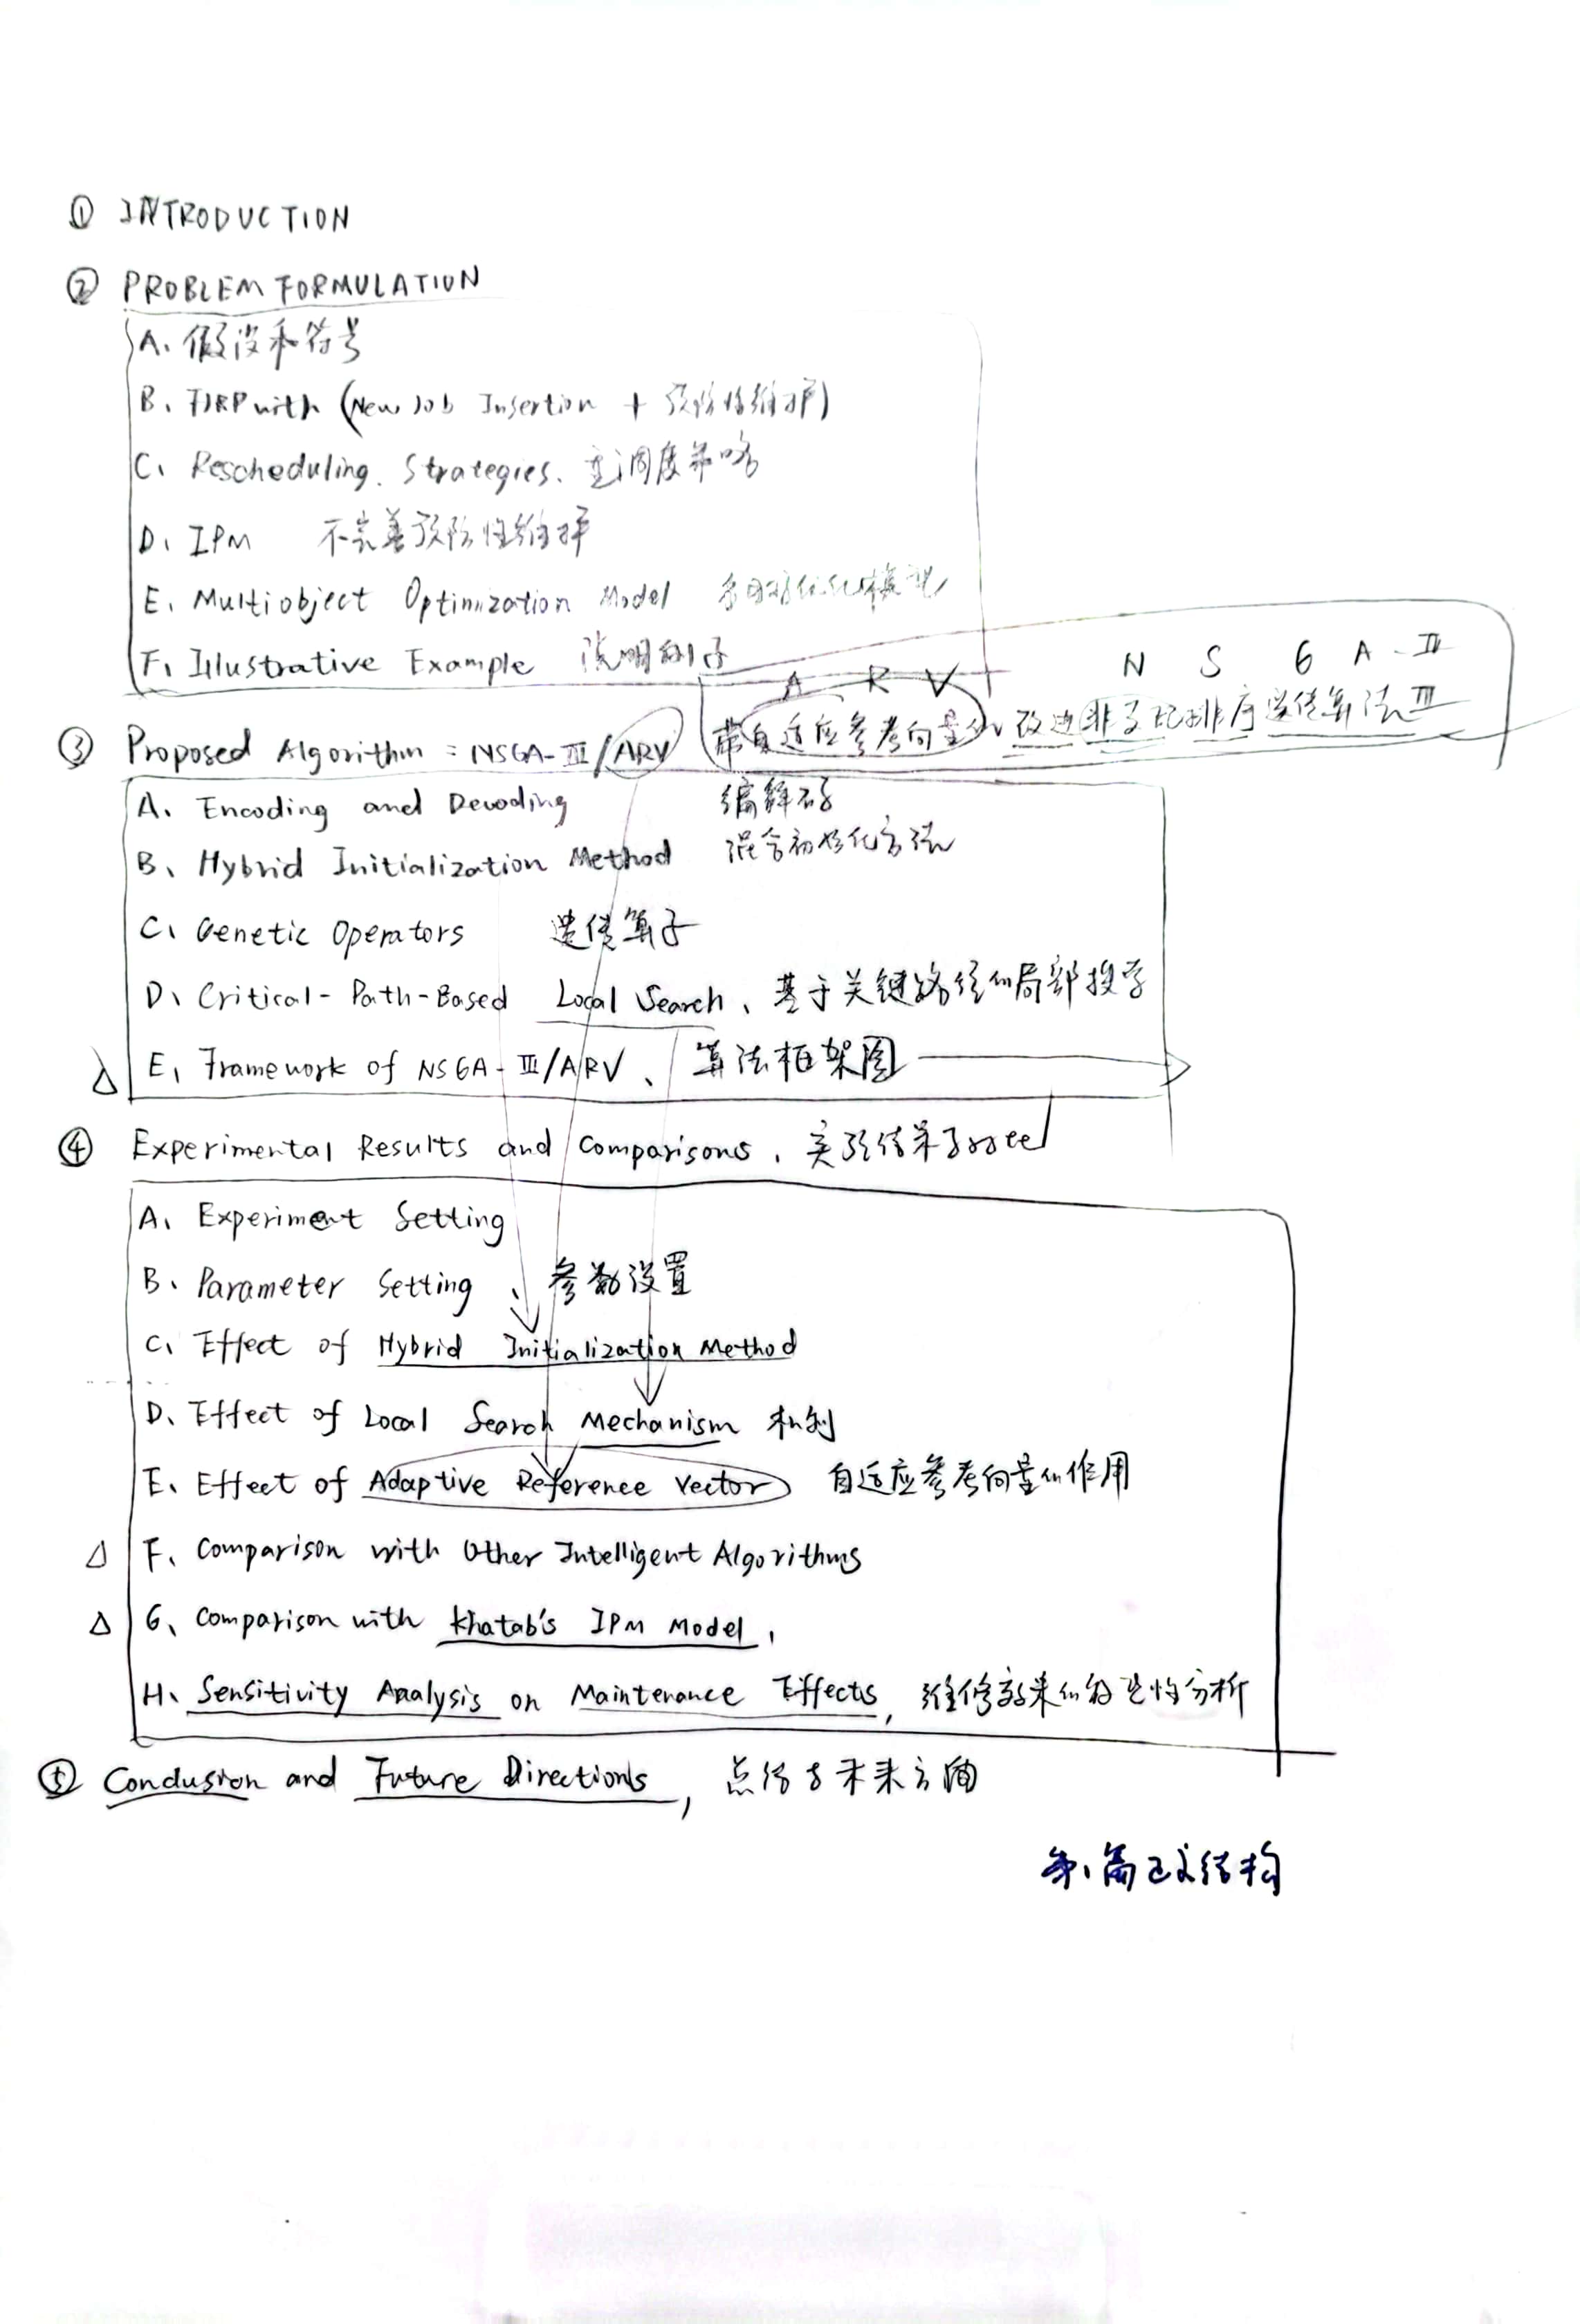 ① INTRODUCTION
② PROBLEM FORMULATION
A、假设和符号
B、FJRP with (New Job Insertion + 预防性维护)
C、Rescheduling Strategies、重调度策略
D、IPM 不完善预防性维护
E、Multiobject Optimization Model 多目标优化模型
F、Illustrative Example 说明例子
N S G A-III
A R V
③ Proposed Algorithm = NSGA-III/ARV 带自适应参考向量的改进非支配排序遗传算法III
A、Encoding and Decoding 编解码
B、Hybrid Initialization Method 混合初始化方法
C、Genetic Operators 遗传算子
D、Critical-Path-Based Local Search、基于关键路径的局部搜索
△ E、Framework of NSGA-III/ARV、算法框架图
④ Experimental Results and Comparisons、实验结果
A、Experiment Setting
B、Parameter Setting、参数设置
C、Effect of Hybrid Initialization Method
D、Effect of Local Search Mechanism 机制
E、Effect of Adaptive Reference Vector 自适应参考向量的作用
△ F、Comparison with Other Intelligent Algorithms
△ G、Comparison with Khatab's IPM Model,
H、Sensitivity Analysis on Maintenance Effects, 维修效果的敏感性分析
⑤ Conclusion and Future Directions, 总结与未来方向
第1篇正文结构